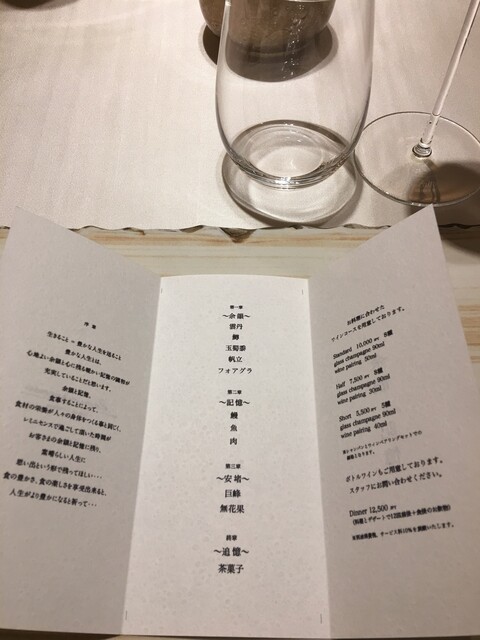 序章
生きること = 豊かな人生を送ること
豊かな人生とは、
心地よい余韻と心に残る暖かい記憶の織物が
充実していることだと思います。
余韻と記憶。
食事することによって、
食材の栄養が人々の身体をつくる事と同じく、
レミニセンスで過ごして頂いた時間が
お客さまの余韻と記憶に残り、
素晴らしい人生に
思い出という形で残ってほしい…
食の豊かさ、食の楽しさを享受出来ると、
人生がより豊かになると祈って…
第一章
～余韻～
雲丹
鱒
玉蜀黍
帆立
フォアグラ
第二章
～記憶～
鰻
魚
肉
第三章
～安堵～
巨峰
無花果
終章
～追憶～
茶菓子
お料理に合わせた
ワインコースも用意しております。
Standard 10,000 JPY 8種
glass champagne 90ml
wine pairing 50ml
Half 7,500 JPY 8種
glass champagne 90ml
wine pairing 30ml
Short 5,500 JPY 5種
glass champagne 90ml
wine pairing 40ml
ボトルワインもご用意しております。
スタッフにお問い合わせください。
Dinner 12,500 JPY